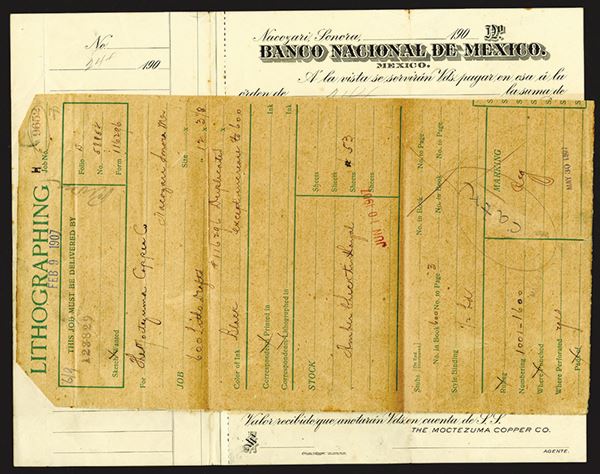 No
244 190
Nacozari, Sonora, 190 No
BANCO NACIONAL DE MEXICO.
MEXICO.
A la vista se servirán Vds. pagar en esa á la
orden de la suma de
LITHOGRAPHING
H Job No. 9652
FEB 9 1907
THIS JOB MUST BE DELIVERED BY
123829
Folio D
No.
Form 116296
Sketch Wanted
For The Moctezuma Copper Co
Nacozari Sonora Mex
JOB 600 Litho Drafts
Size 12 x 3 7/8
#116296 Duplicated
except increase to 600
Color of Ink Black
Correspondent Printed in Ink
Correspondent Lithographed in Ink
STOCK
Sheets
Sheets # 53
Sheets
Sheets
JUN 10 1907
No. in Book No. to Page
No. in Book No. to Page
No. in Book 600 No. to Page 3
Style Binding
MARNING
MAY 30 1907
Ruling
Numbering 1001-1600
Where Punched
Where Perforated yes
Padded
Valor recibido que anotarán Vds. en cuenta de S.S.
THE MOCTEZUMA COPPER CO.
AGENTE.